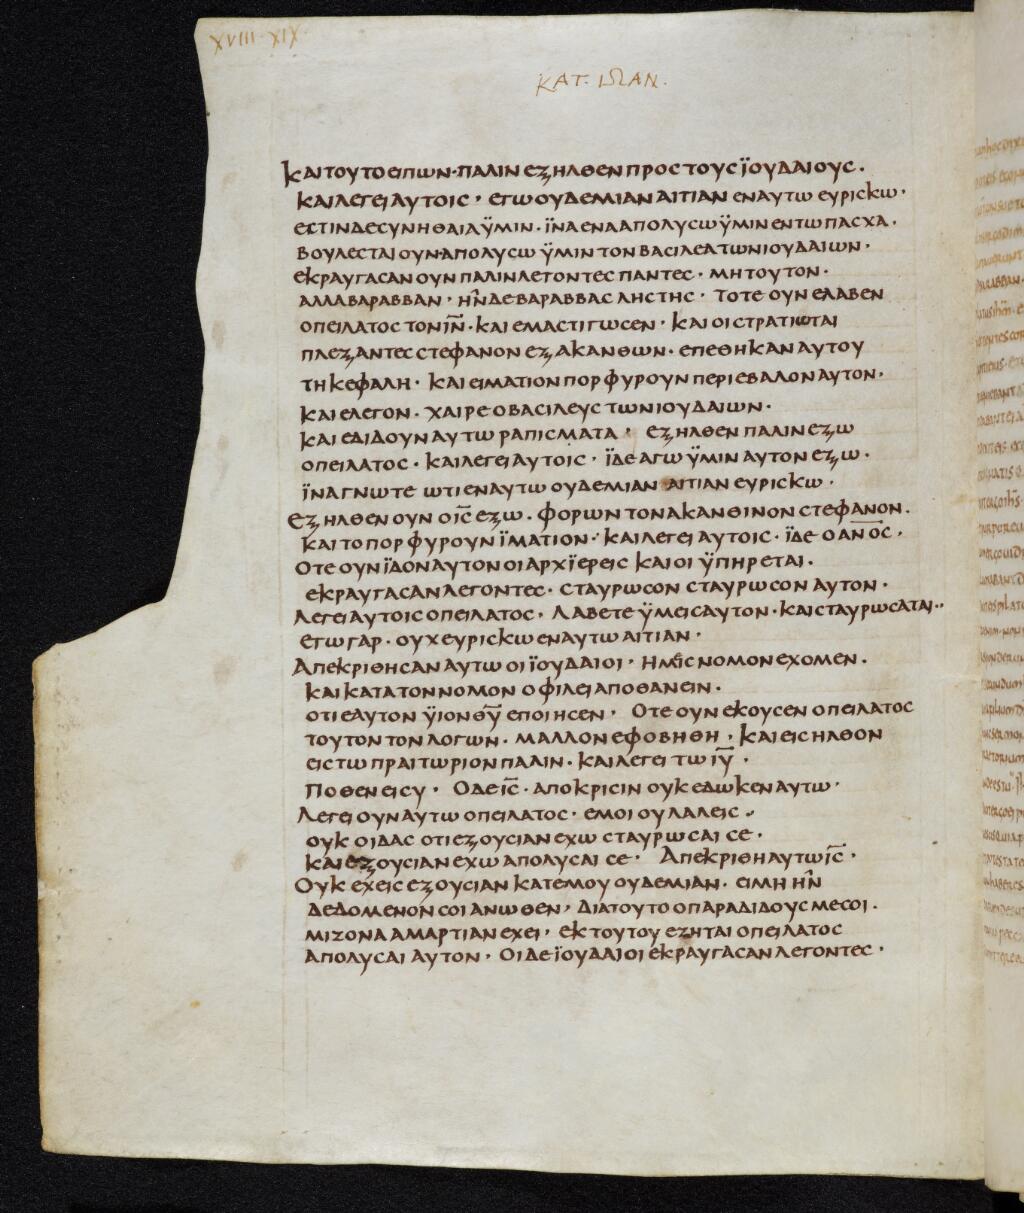 XVIII·XIX
ΚΑΤ. ΙΩΑΝ.
ΚΑΙΤΟΥΤΟΕΙΠΩΝ·ΠΑΛΙΝΕΞΗΛΘΕΝΠΡΟΣΤΟΥΣΪΟΥΔΑΙΟΥΣ.
ΚΑΙΛΕΓΕΙΑΥΤΟΙΣ· ΕΓΩΟΥΔΕΜΙΑΝΑΙΤΙΑΝΕΝΑΥΤΩΕΥΡΙΣΚΩ·
ΕΣΤΙΝΔΕΣΥΝΗΘΑΙΑΫΜΙΝ·ΪΝΑΕΝΑΑΠΟΛΥΣΩΫΜΙΝΕΝΤΩΠΑΣΧΑ.
ΒΟΥΛΕΣΤΑΙΟΥΝ·ΑΠΟΛΥΣΩΫΜΙΝΤΟΝΒΑΣΙΛΕΑΤΩΝΙΟΥΔΑΙΩΝ·
ΕΚΡΑΥΓΑΣΑΝΟΥΝΠΑΛΙΝΛΕΓΟΝΤΕΣΠΑΝΤΕΣ· ΜΗΤΟΥΤΟΝ·
ΑΛΛΑΒΑΡΑΒΒΑΝ· ΗΝΔΕΒΑΡΑΒΒΑΣΛΗΣΤΗΣ· ΤΟΤΕΟΥΝΕΛΑΒΕΝ
ΟΠΕΙΛΑΤΟΣΤΟΝΙ̅Ν̅·ΚΑΙΕΜΑΣΤΙΓΩΣΕΝ· ΚΑΙΟΙΣΤΡΑΤΙΩΤΑΙ
ΠΛΕΞΑΝΤΕΣΣΤΕΦΑΝΟΝΕΞΑΚΑΝΘΩΝ·ΕΠΕΘΗΚΑΝΑΥΤΟΥ
ΤΗΚΕΦΑΛΗ· ΚΑΙΕΙΜΑΤΙΟΝΠΟΡΦΥΡΟΥΝΠΕΡΙΕΒΑΛΟΝΑΥΤΟΝ·
ΚΑΙΕΛΕΓΟΝ·ΧΑΙΡΕΟΒΑΣΙΛΕΥΣΤΩΝΙΟΥΔΑΙΩΝ·
ΚΑΙΕΔΙΔΟΥΝΑΥΤΩΡΑΠΙΣΜΑΤΑ· ΕΞΗΛΘΕΝΠΑΛΙΝΕΞΩ
ΟΠΕΙΛΑΤΟΣ·ΚΑΙΛΕΓΕΙΑΥΤΟΙΣ·ΪΔΕΑΓΩΫΜΙΝΑΥΤΟΝΕΞΩ·
ΪΝΑΓΝΩΤΕΩΤΙΕΝΑΥΤΩΟΥΔΕΜΙΑΝΑΙΤΙΑΝΕΥΡΙΣΚΩ·
ΕΞΗΛΘΕΝΟΥΝΟΙ̅Σ̅ΕΞΩ·ΦΟΡΩΝΤΟΝΑΚΑΝΘΙΝΟΝΣΤΕΦΑΝΟΝ.
ΚΑΙΤΟΠΟΡΦΥΡΟΥΝΪΜΑΤΙΟΝ·ΚΑΙΛΕΓΕΙΑΥΤΟΙΣ·ΪΔΕΟΑ̅Ν̅Ο̅Σ̅·
ΟΤΕΟΥΝΪΔΟΝΑΥΤΟΝΟΙΑΡΧΪΕΡΕΙΣΚΑΙΟΙΫΠΗΡΕΤΑΙ.
ΕΚΡΑΥΓΑΣΑΝΛΕΓΟΝΤΕΣ·ΣΤΑΥΡΩΣΟΝΣΤΑΥΡΩΣΟΝΑΥΤΟΝ·
ΛΕΓΕΙΑΥΤΟΙΣΟΠΕΙΛΑΤΟΣ·ΛΑΒΕΤΕΫΜΕΙΣΑΥΤΟΝ·ΚΑΙΣΤΑΥΡΩΣΑΤΑΙ··
ΕΓΩΓΑΡ·ΟΥΧΕΥΡΙΣΚΩΕΝΑΥΤΩΑΙΤΙΑΝ·
ΑΠΕΚΡΙΘΗΣΑΝΑΥΤΩΟΙΪΟΥΔΑΙΟΙ·ΗΜΕΙΣΝΟΜΟΝΕΧΟΜΕΝ.
ΚΑΙΚΑΤΑΤΟΝΝΟΜΟΝΟΦΙΛΕΙΑΠΟΘΑΝΕΙΝ.
ΟΤΙΕΑΥΤΟΝΫΙΟΝΘ̅Υ̅ΕΠΟΙΗΣΕΝ· ΟΤΕΟΥΝΕΚΟΥΣΕΝΟΠΕΙΛΑΤΟΣ
ΤΟΥΤΟΝΤΟΝΛΟΓΩΝ·ΜΑΛΛΟΝΕΦΟΒΗΘΗ·ΚΑΙΕΙΣΗΛΘΟΝ
ΕΙΣΤΩΠΡΑΙΤΩΡΙΟΝΠΑΛΙΝ·ΚΑΙΛΕΓΕΙΤΩΙ̅Υ̅·
ΠΟΘΕΝΕΙΣΥ· ΟΔΕΙ̅Σ̅·ΑΠΟΚΡΙΣΙΝΟΥΚΕΔΩΚΕΝΑΥΤΩ·
ΛΕΓΕΙΟΥΝΑΥΤΩΟΠΕΙΛΑΤΟΣ·ΕΜΟΙΟΥΛΑΛΕΙΣ··
ΟΥΚΟΙΔΑΣΟΤΙΕΞΟΥΣΙΑΝΕΧΩΣΤΑΥΡΩΣΑΙΣΕ·
ΚΑΙΕΞΟΥΣΙΑΝΕΧΩΑΠΟΛΥΣΑΙΣΕ· ΑΠΕΚΡΙΘΗΑΥΤΩΙ̅Σ̅·
ΟΥΚΕΧΕΙΣΕΞΟΥΣΙΑΝΚΑΤΕΜΟΥΟΥΔΕΜΙΑΝ·ΕΙΜΗΗΝ
ΔΕΔΟΜΕΝΟΝΣΟΙΑΝΩΘΕΝ·ΔΙΑΤΟΥΤΟΟΠΑΡΑΔΙΔΟΥΣΜΕΣΟΙ.
ΜΙΖΟΝΑΑΜΑΡΤΙΑΝΕΧΕΙ·ΕΚΤΟΥΤΟΥΕΖΗΤΑΙΟΠΕΙΛΑΤΟΣ
ΑΠΟΛΥΣΑΙΑΥΤΟΝ·ΟΙΔΕΪΟΥΔΑΙΟΙΕΚΡΑΥΓΑΣΑΝΛΕΓΟΝΤΕΣ·